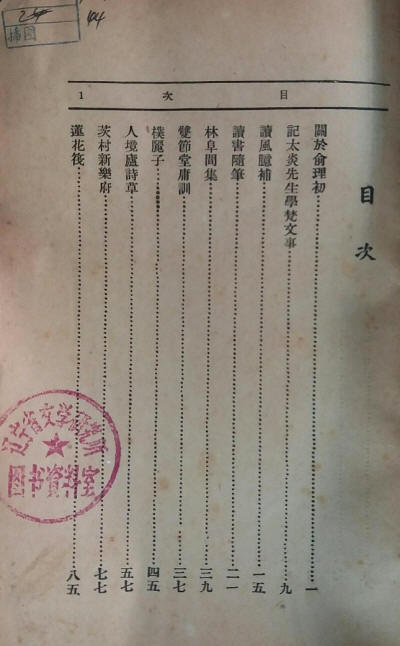 24
44
插图
目 次 1
目次
關於俞理初……一
記太炎先生學梵文事……九
讀風臆補……一五
讀書隨筆……二一
林阜間集……三九
雙節堂庸訓……三七
樸麗子……四五
人境廬詩草……五七
茨村新樂府……七七
蓮花筏……八五
辽宁省文学研究所
图书资料室